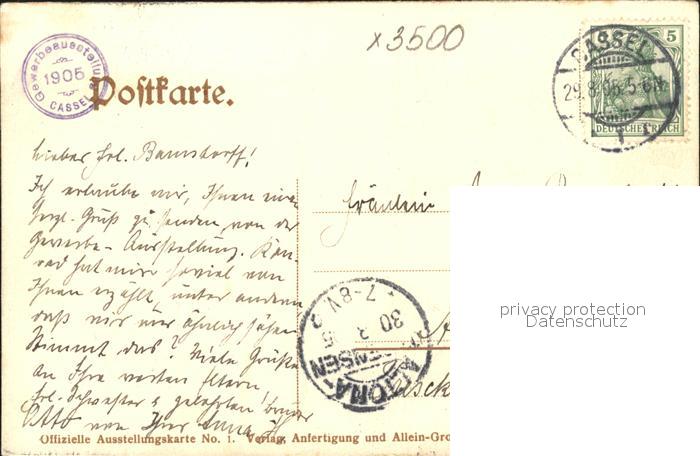 x 3500
Gewerbeausstellung
1905
CASSEL
Postkarte.
CASSEL
29.8.05.5-6N.
5
DEUTSCHES REICH
Liebes Frl. Bamstorff!
Ich erlaube mir, Ihnen einen
herzl. Gruß zu senden von der
Gewerbe-Ausstellung. Kon-
rad hat mir soviel von
Ihnen erzählt, unter anderem
daß wir uns ähnlich sähen
Stimmt das? Viele Grüße
an Ihre werten Eltern
Frl. Schwester & gelehrten Bruder
Otto von Ihrer Anna
Fräulein
ALTONA-
7-8V.
30
privacy protection
Datenschutz
Offizielle Ausstellungskarte No. 1. Verlag, Anfertigung und Allein-Gro